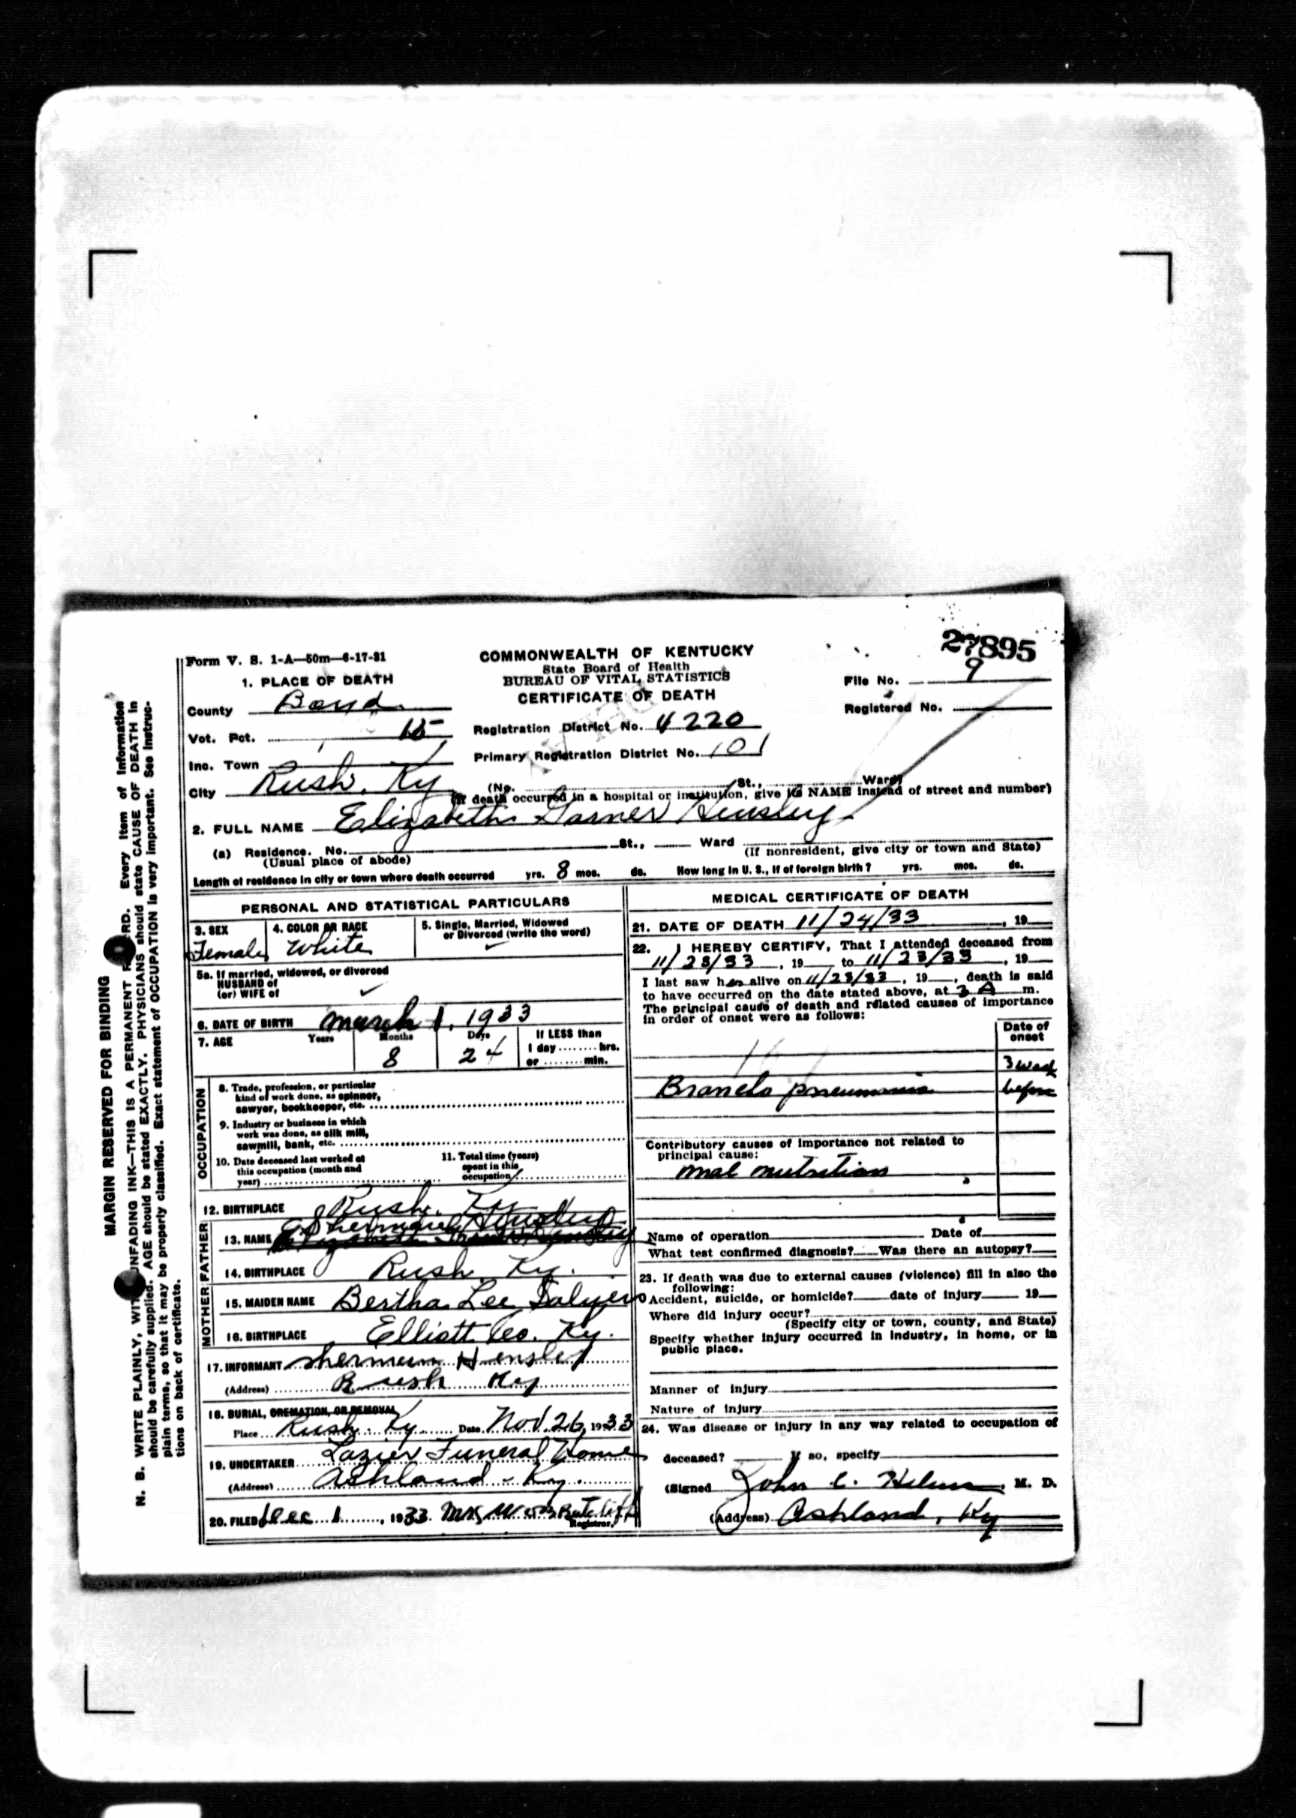 27895
Form V. S. 1-A—50m—6-17-31
COMMONWEALTH OF KENTUCKY
State Board of Health
BUREAU OF VITAL STATISTICS
CERTIFICATE OF DEATH
File No. 9
Registered No.
1. PLACE OF DEATH
County Boyd
Vot. Pct. 15
Inc. Town
City Rush, Ky
Registration District No. 4220
Primary Registration District No. 101
(No. St., Ward)
(If death occurred in a hospital or institution, give its NAME instead of street and number)
2. FULL NAME Elizabeth Garner Hensley
(a) Residence. No. St., Ward
(Usual place of abode) (If nonresident, give city or town and State)
Length of residence in city or town where death occurred yrs. 8 mos. ds. How long in U. S., if of foreign birth? yrs. mos. ds.
PERSONAL AND STATISTICAL PARTICULARS
3. SEX Female
4. COLOR OR RACE White
5. Single, Married, Widowed
or Divorced (write the word)
5a. If married, widowed, or divorced
HUSBAND of
(or) WIFE of
6. DATE OF BIRTH March 1, 1933
7. AGE Years Months Days If LESS than
8 24 1 day ........ hrs.
or ........ min.
OCCUPATION
8. Trade, profession, or particular
kind of work done, as spinner,
sawyer, bookkeeper, etc.
9. Industry or business in which
work was done, as silk mill,
sawmill, bank, etc.
10. Date deceased last worked at
this occupation (month and
year)
11. Total time (years)
spent in this
occupation
12. BIRTHPLACE Rush, Ky
FATHER
13. NAME Sherman Hensley
14. BIRTHPLACE Rush, Ky.
MOTHER
15. MAIDEN NAME Bertha Lee Salyers
16. BIRTHPLACE Elliott Co. Ky.
17. INFORMANT Sherman Hensley
(Address) Rush Ky
18. BURIAL, CREMATION, OR REMOVAL
Place Rush, Ky. Date Nov. 26, 1933
19. UNDERTAKER Lazier Funeral Home
(Address) Ashland - Ky.
20. FILED Dec 1, 1933 Mrs
Registrar.
MEDICAL CERTIFICATE OF DEATH
21. DATE OF DEATH 11/24/33, 19
22. I HEREBY CERTIFY, That I attended deceased from
11/23/33, 19 to 11/23/33, 19
I last saw her alive on 11/23/33, 19, death is said
to have occurred on the date stated above, at 3 A m.
The principal cause of death and related causes of importance
in order of onset were as follows:
Date of
onset
3 week
Broncho pneumonia before
Contributory causes of importance not related to
principal cause:
mal nutrition
Name of operation Date of
What test confirmed diagnosis? Was there an autopsy?
23. If death was due to external causes (violence) fill in also the
following:
Accident, suicide, or homicide? date of injury 19
Where did injury occur?
(Specify city or town, county, and State)
Specify whether injury occurred in industry, in home, or in
public place.
Manner of injury
Nature of injury
24. Was disease or injury in any way related to occupation of
deceased? If so, specify
(Signed John C. M. D.
(Address) Ashland, Ky
MARGIN RESERVED FOR BINDING
N. B. WRITE PLAINLY, WITH UNFADING INK—THIS IS A PERMANENT RECORD. Every item of information
should be carefully supplied. AGE should be stated EXACTLY. PHYSICIANS should state CAUSE OF DEATH in
plain terms, so that it may be properly classified. Exact statement of OCCUPATION is very important. See instruc-
tions on back of certificate.